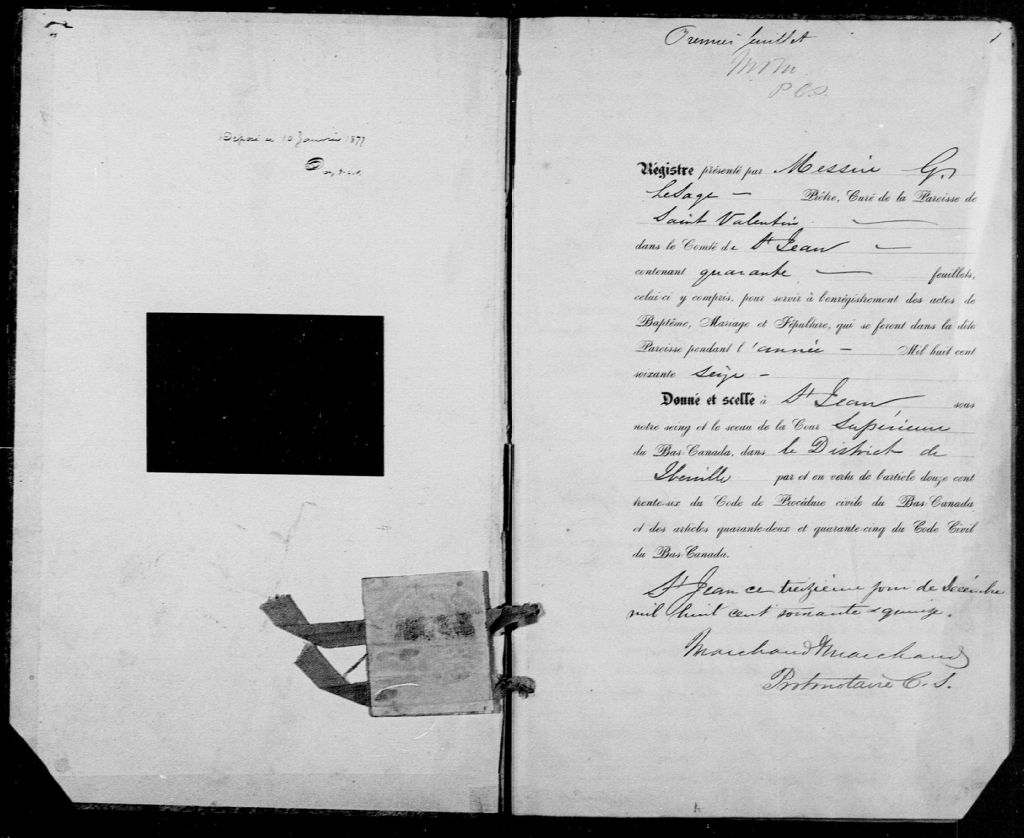 Déposé ce 10 Janvier 1877
Premier feuillet
1
M & M
P.C.S.
Régistre présenté par Messire G.
LeSage — Prêtre, Curé de la Paroisse de
Saint Valentin —
dans le Comté de St Jean —
contenant quarante — feuillets,
celui-ci y compris, pour servir à l'enrégistrement des actes de
Baptême, Mariage et Sépulture, qui se feront dans la dite
Paroisse pendant l'année — Mil huit cent
soixante seize —
Donné et scellé à St Jean sous
notre seing et le sceau de la Cour Supérieure
du Bas-Canada, dans le District de
Iberville par et en vertu de l'article douze cent
trente-six du Code de Procédure civile du Bas-Canada
et des articles quarante-deux et quarante-cinq du Code Civil
du Bas-Canada.
St Jean ce treizième jour de Decémbre
mil huit cent soixante & quinze.
Marchand & Marchand
Protonotaire C. S.